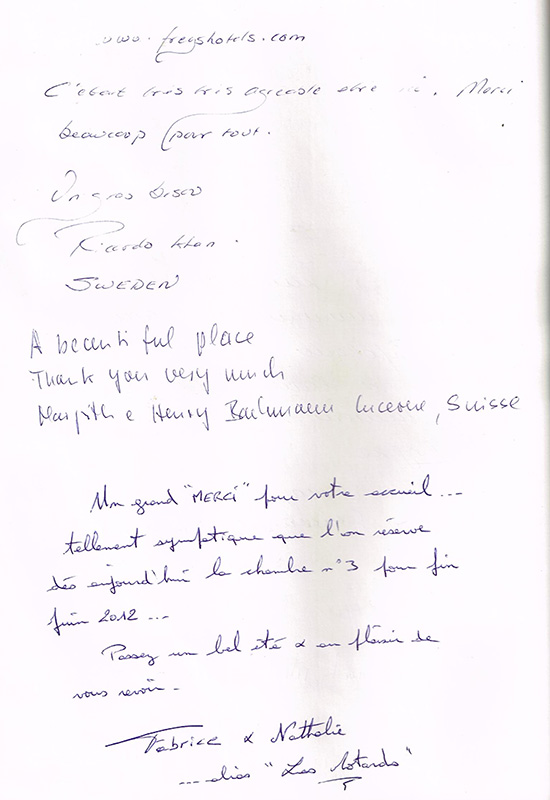 www.freyshotels.com
C'était très très agréable être ici. Merci
beaucoup pour tout.
Un gros bisou
Ricardo
SWEDEN
A beautiful place
Thank you very much
Margith e Henry Bachmann Lucerne, Suisse
Un grand "MERCI" pour votre accueil...
tellement sympatique que l'on réserve
dès aujourd'hui la chambre n°3 pour fin
juin 2012...
Passez un bel été & au plaisir de
vous revoir.
Fabrice & Nathalie
...alias "Les lotards"